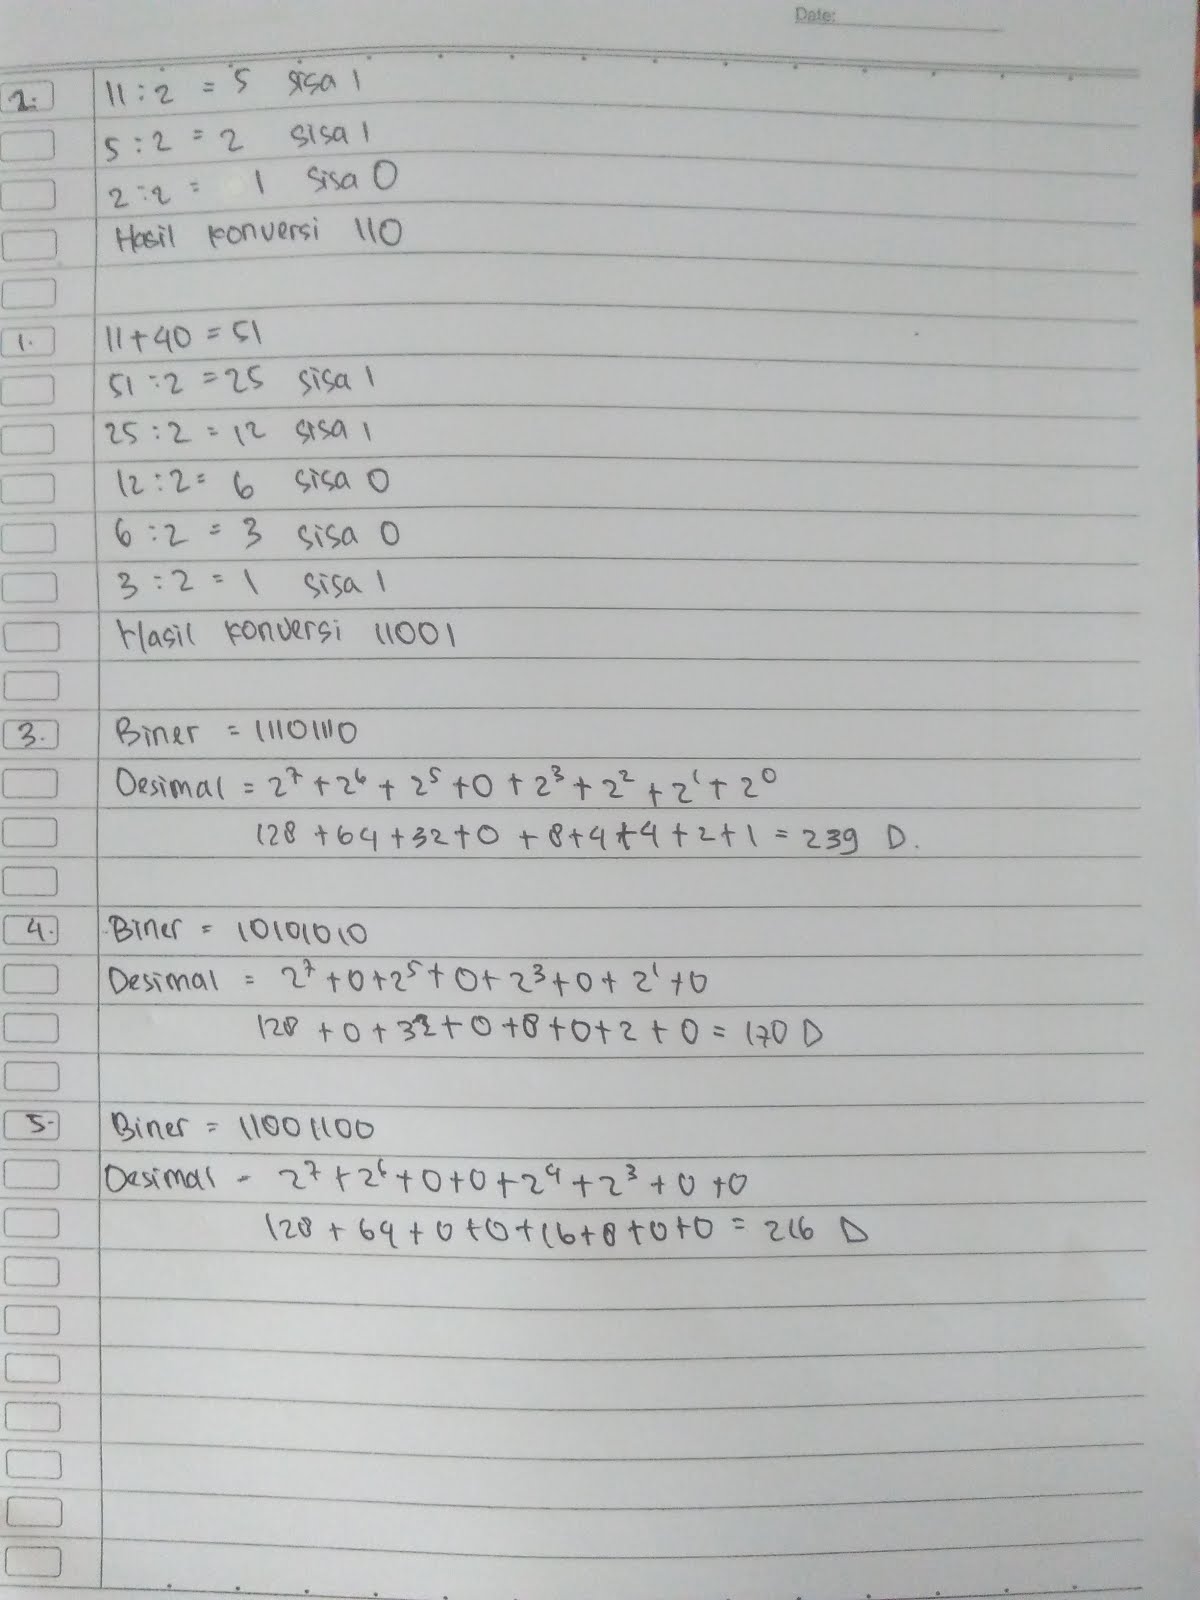 Date:
2. 11 : 2 = 5 sisa 1
5 : 2 = 2 sisa 1
2 : 2 = 1 sisa 0
Hasil konversi 110
1. 11 + 40 = 51
51 : 2 = 25 sisa 1
25 : 2 = 12 sisa 1
12 : 2 = 6 sisa 0
6 : 2 = 3 sisa 0
3 : 2 = 1 sisa 1
Hasil konversi 11001
3. Biner = 11101110
Desimal = 2⁷ + 2⁶ + 2⁵ + 0 + 2³ + 2² + 2¹ + 2⁰
128 + 64 + 32 + 0 + 8 + 4 + 4 + 2 + 1 = 239 D.
4. Biner = 10101010
Desimal = 2⁷ + 0 + 2⁵ + 0 + 2³ + 0 + 2¹ + 0
128 + 0 + 32 + 0 + 8 + 0 + 2 + 0 = 170 D
5. Biner = 11001100
Desimal = 2⁷ + 2⁶ + 0 + 0 + 2⁴ + 2³ + 0 + 0
128 + 64 + 0 + 0 + 16 + 8 + 0 + 0 = 216 D